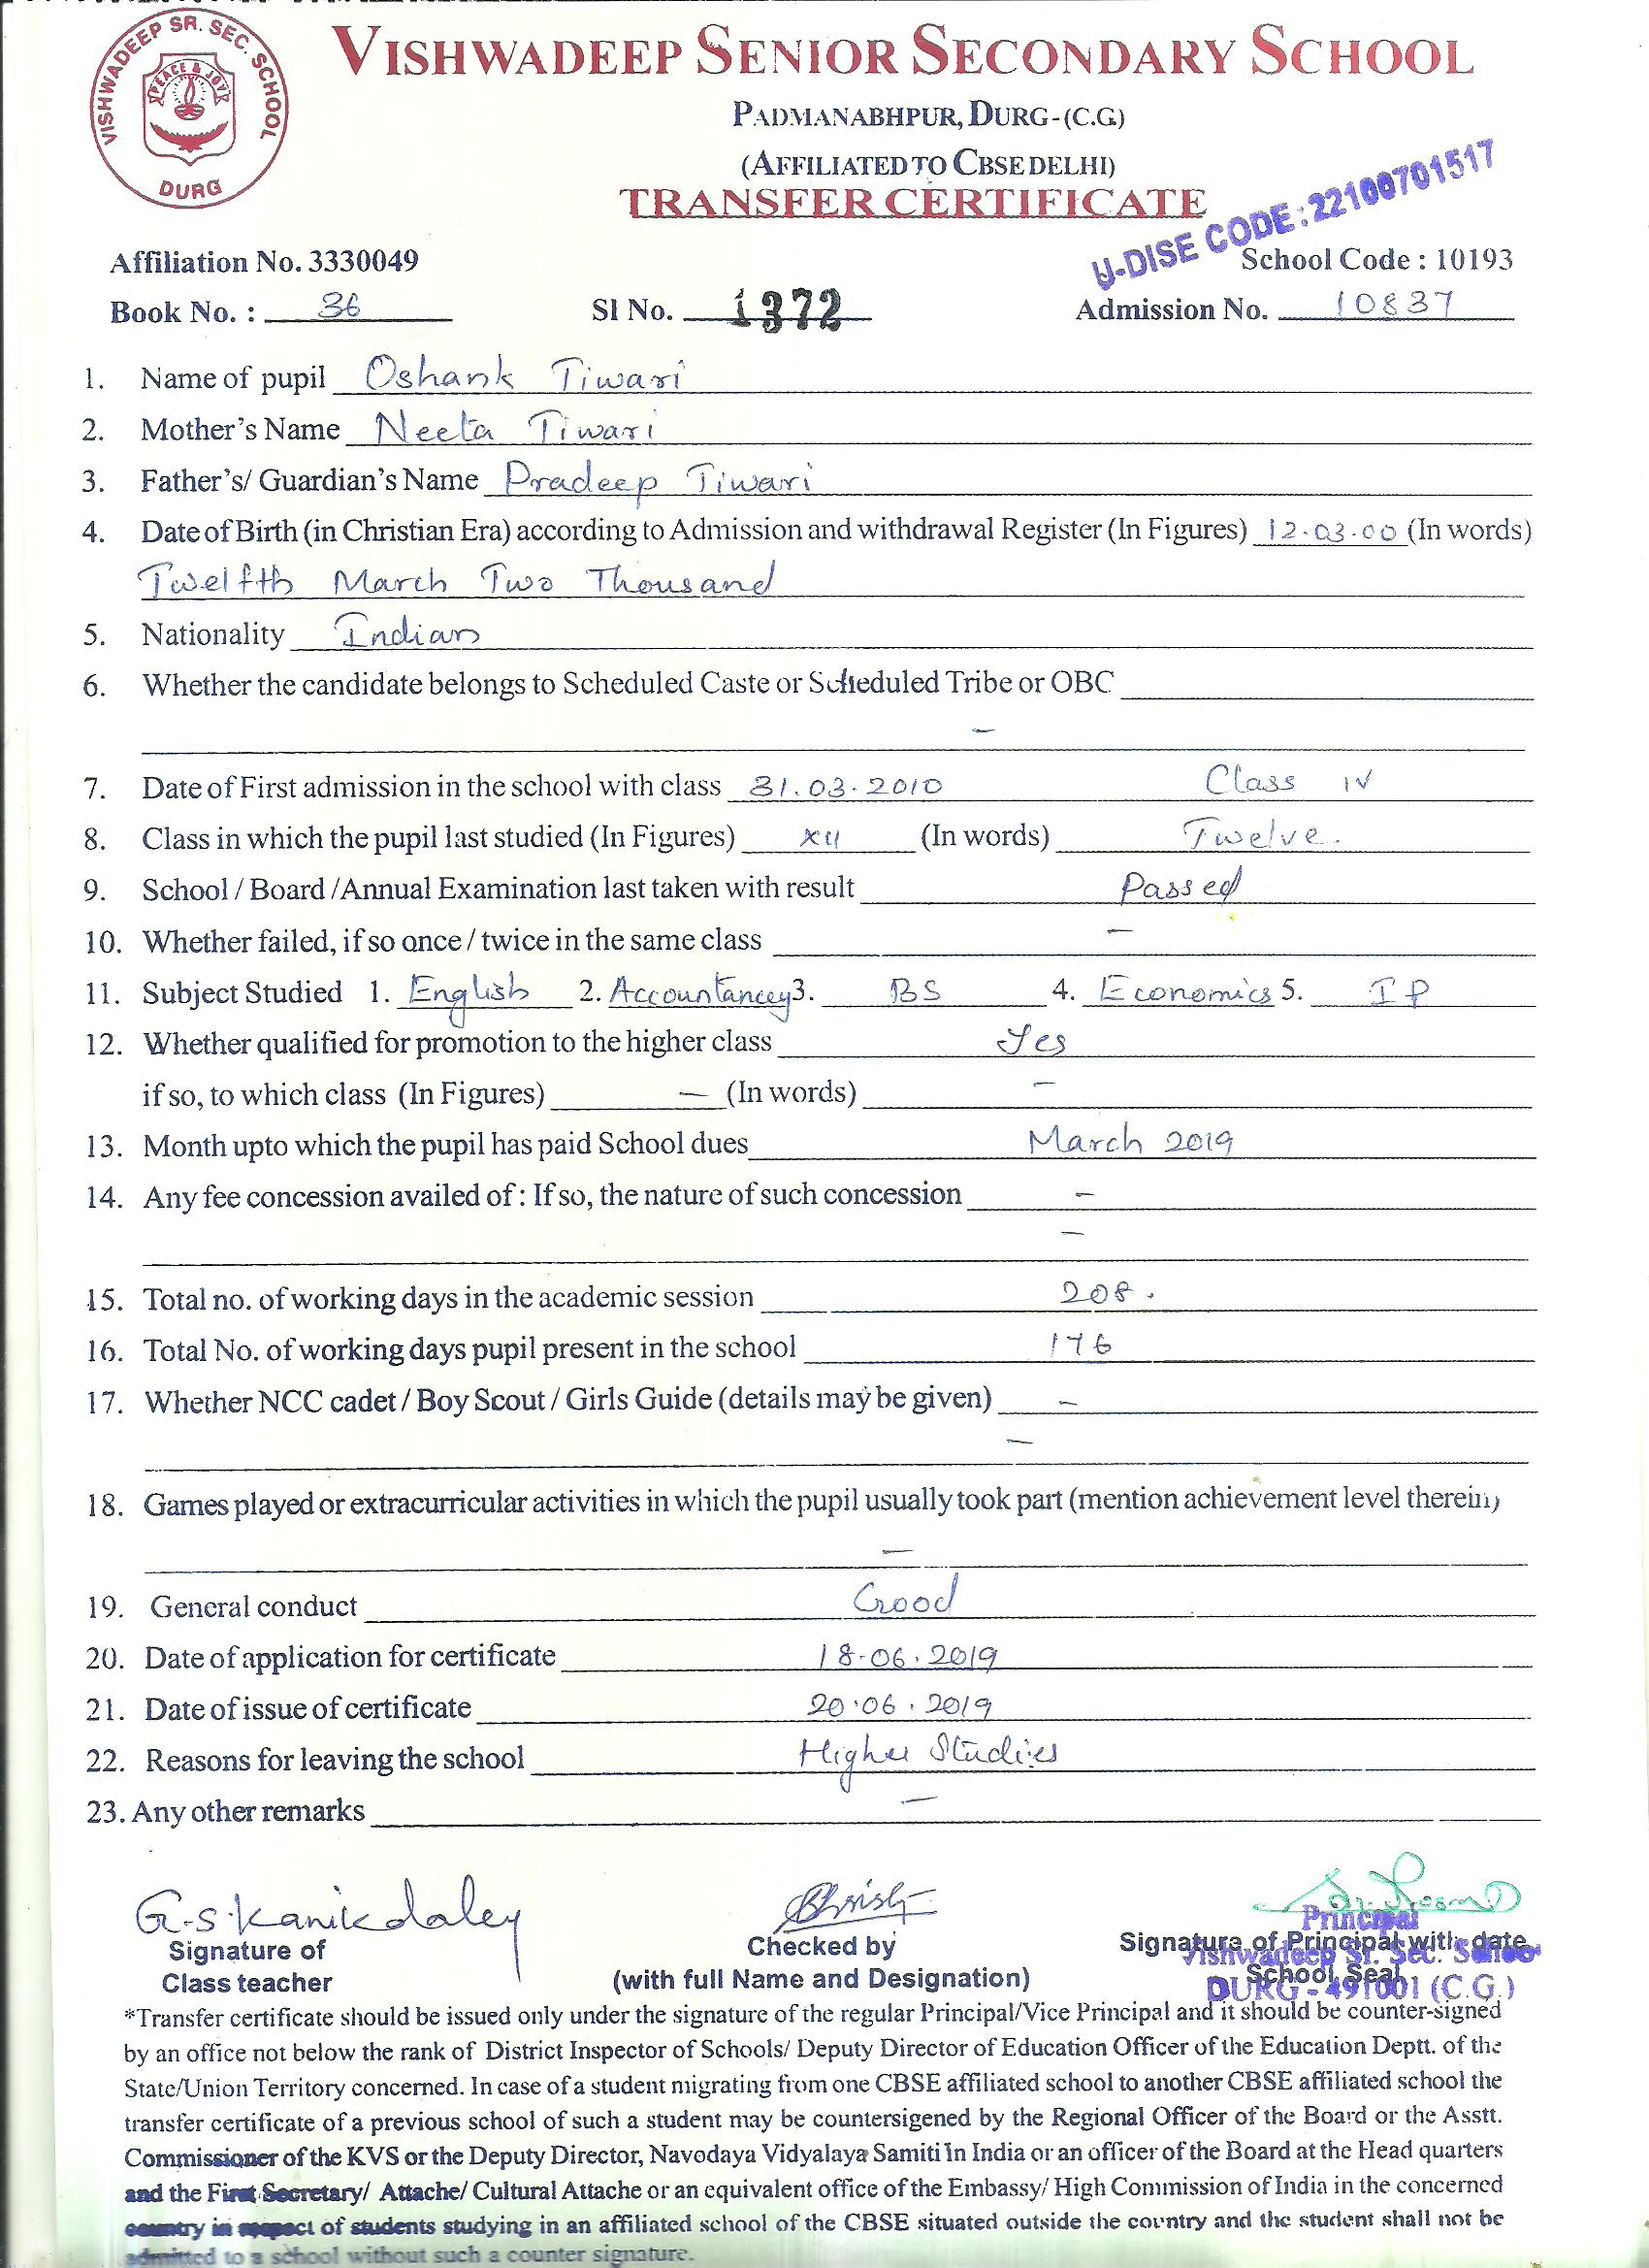 VISHWADEEP SR. SEC. SCHOOL
PEACE & JOY
DURG
VISHWADEEP SENIOR SECONDARY SCHOOL
PADMANABHPUR, DURG-(C.G.)
(AFFILIATED TO CBSE DELHI)
TRANSFER CERTIFICATE
U-DISE CODE:22100701517
Affiliation No. 3330049 School Code : 10193
Book No. : 36 Sl No. 1372 Admission No. 10837
1. Name of pupil Oshank Tiwari
2. Mother's Name Neeta Tiwari
3. Father's/ Guardian's Name Pradeep Tiwari
4. Date of Birth (in Christian Era) according to Admission and withdrawal Register (In Figures) 12.03.00 (In words)
Twelfth March Two Thousand
5. Nationality Indian
6. Whether the candidate belongs to Scheduled Caste or Scheduled Tribe or OBC
–
7. Date of First admission in the school with class 31.03.2010 Class IV
8. Class in which the pupil last studied (In Figures) XII (In words) Twelve.
9. School / Board /Annual Examination last taken with result Passed
10. Whether failed, if so once / twice in the same class –
11. Subject Studied 1. English 2. Accountancy 3. BS 4. Economics 5. IP
12. Whether qualified for promotion to the higher class Yes
if so, to which class (In Figures) – (In words) –
13. Month upto which the pupil has paid School dues March 2019
14. Any fee concession availed of : If so, the nature of such concession –
–
15. Total no. of working days in the academic session 208.
16. Total No. of working days pupil present in the school 176
17. Whether NCC cadet / Boy Scout / Girls Guide (details may be given) –
–
18. Games played or extracurricular activities in which the pupil usually took part (mention achievement level therein)
–
19. General conduct Good
20. Date of application for certificate 18-06.2019
21. Date of issue of certificate 20.06.2019
22. Reasons for leaving the school Higher Studies
23. Any other remarks –
G.S.Kanikdaley
Signature of Checked by Signature of Principal with date
Class teacher (with full Name and Designation) School Seal
Principal
Vishwadeep Sr. Sec. School
DURG - 491001 (C.G.)
*Transfer certificate should be issued only under the signature of the regular Principal/Vice Principal and it should be counter-signed
by an office not below the rank of District Inspector of Schools/ Deputy Director of Education Officer of the Education Deptt. of the
State/Union Territory concerned. In case of a student migrating from one CBSE affiliated school to another CBSE affiliated school the
transfer certificate of a previous school of such a student may be countersigened by the Regional Officer of the Board or the Asstt.
Commissioner of the KVS or the Deputy Director, Navodaya Vidyalaya Samiti in India or an officer of the Board at the Head quarters
and the First Secretary/ Attache/ Cultural Attache or an equivalent office of the Embassy/ High Commission of India in the concerned
country in respect of students studying in an affiliated school of the CBSE situated outside the country and the student shall not be
admitted to a school without such a counter signature.